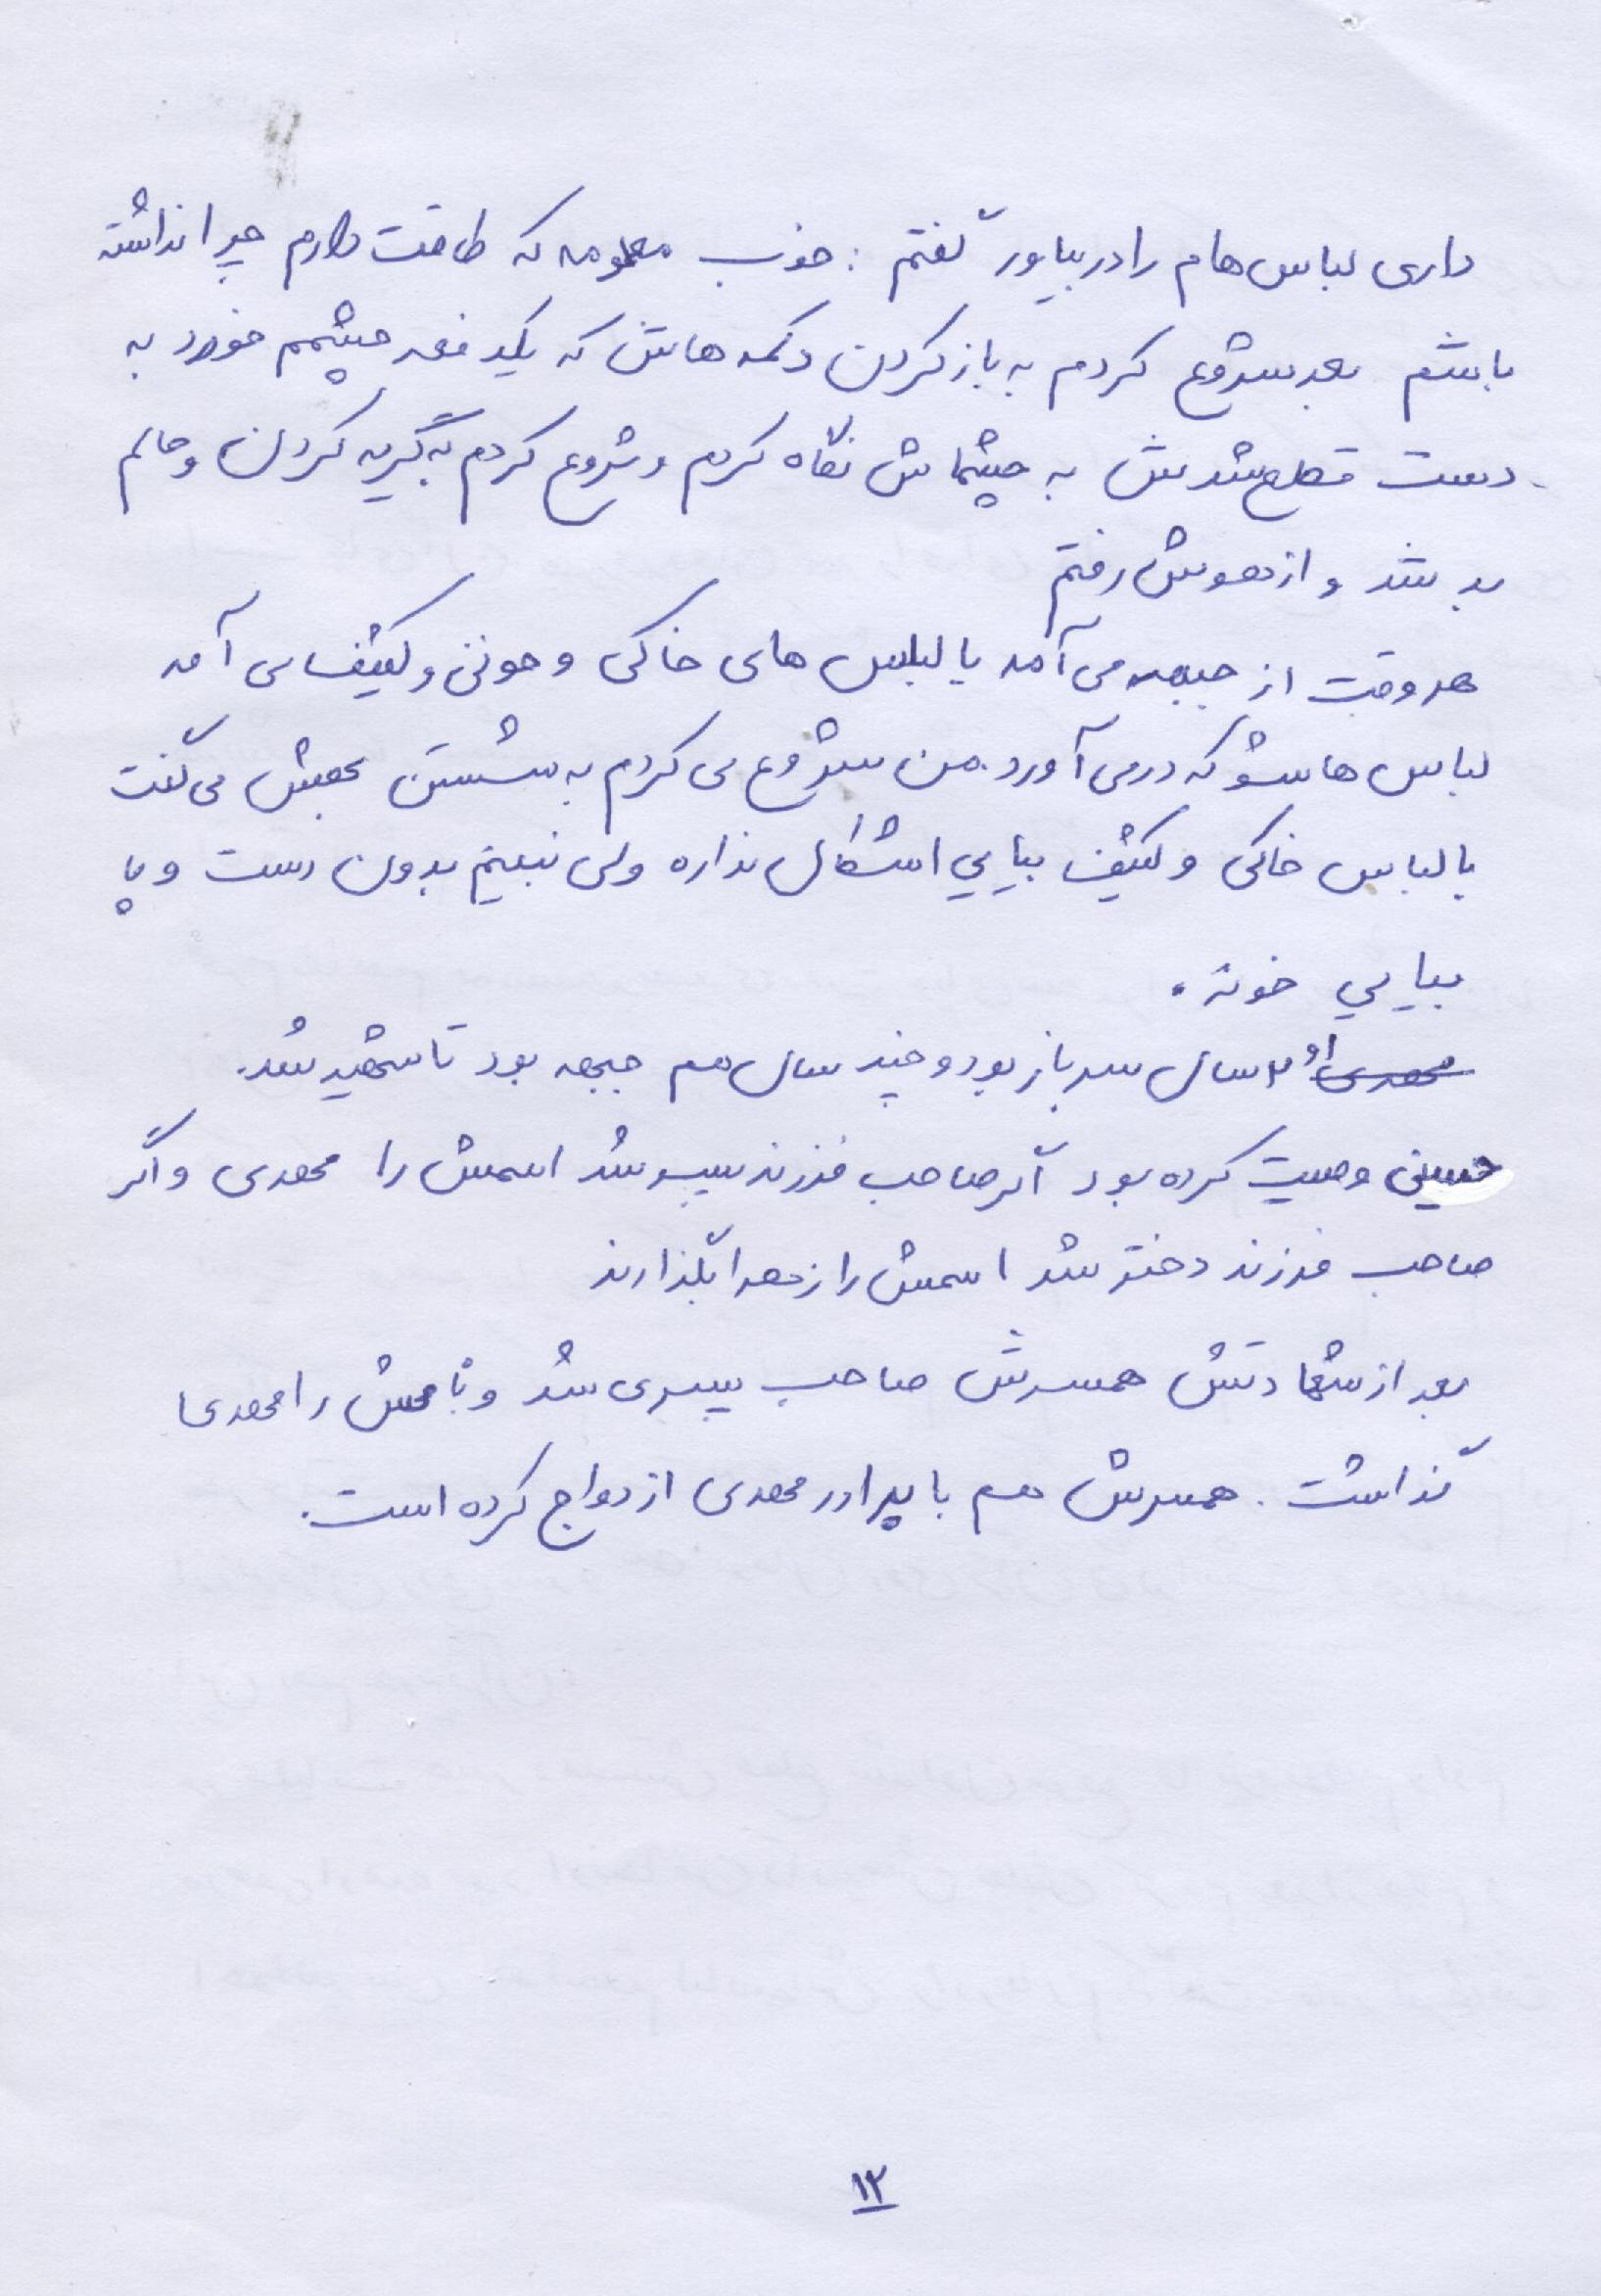 داری لباس هام را دربیاور گفتم : خوب معلومه که طاقت دارم چرا نداشته
باشم بعد شروع کردم به باز کردن دکمه هاش که یکدفعه چشمم خورد به
دست قطع شدش به چشماش نگاه کردم و شروع کردم به گریه کردن و حالم
بد شد و از هوش رفتم
هر وقت از جبهه می آمد با لباس های خاکی و خونی و کثیف می آمد
لباس هاشو که در می آورد من شروع می کردم به شستن بهش می گفت
با لباس خاکی و کثیف بیایی اشکال نداره ولی نبینم بدون دست و پا
بیایی خونه .
او ۲ سال سرباز بود و چند سال هم جبهه بود تا شهید شد.
حسین وصیت کرده بود اگر صاحب فرزند پسر شد اسمش را مهدی و اگر
صاحب فرزند دختر شد اسمش را زهرا بگذارند
بعد از شهادتش همسرش صاحب پسری شد و نامش را مهدی
گذاشت . همسرش هم با برادر مهدی ازدواج کرده است .
۱۲